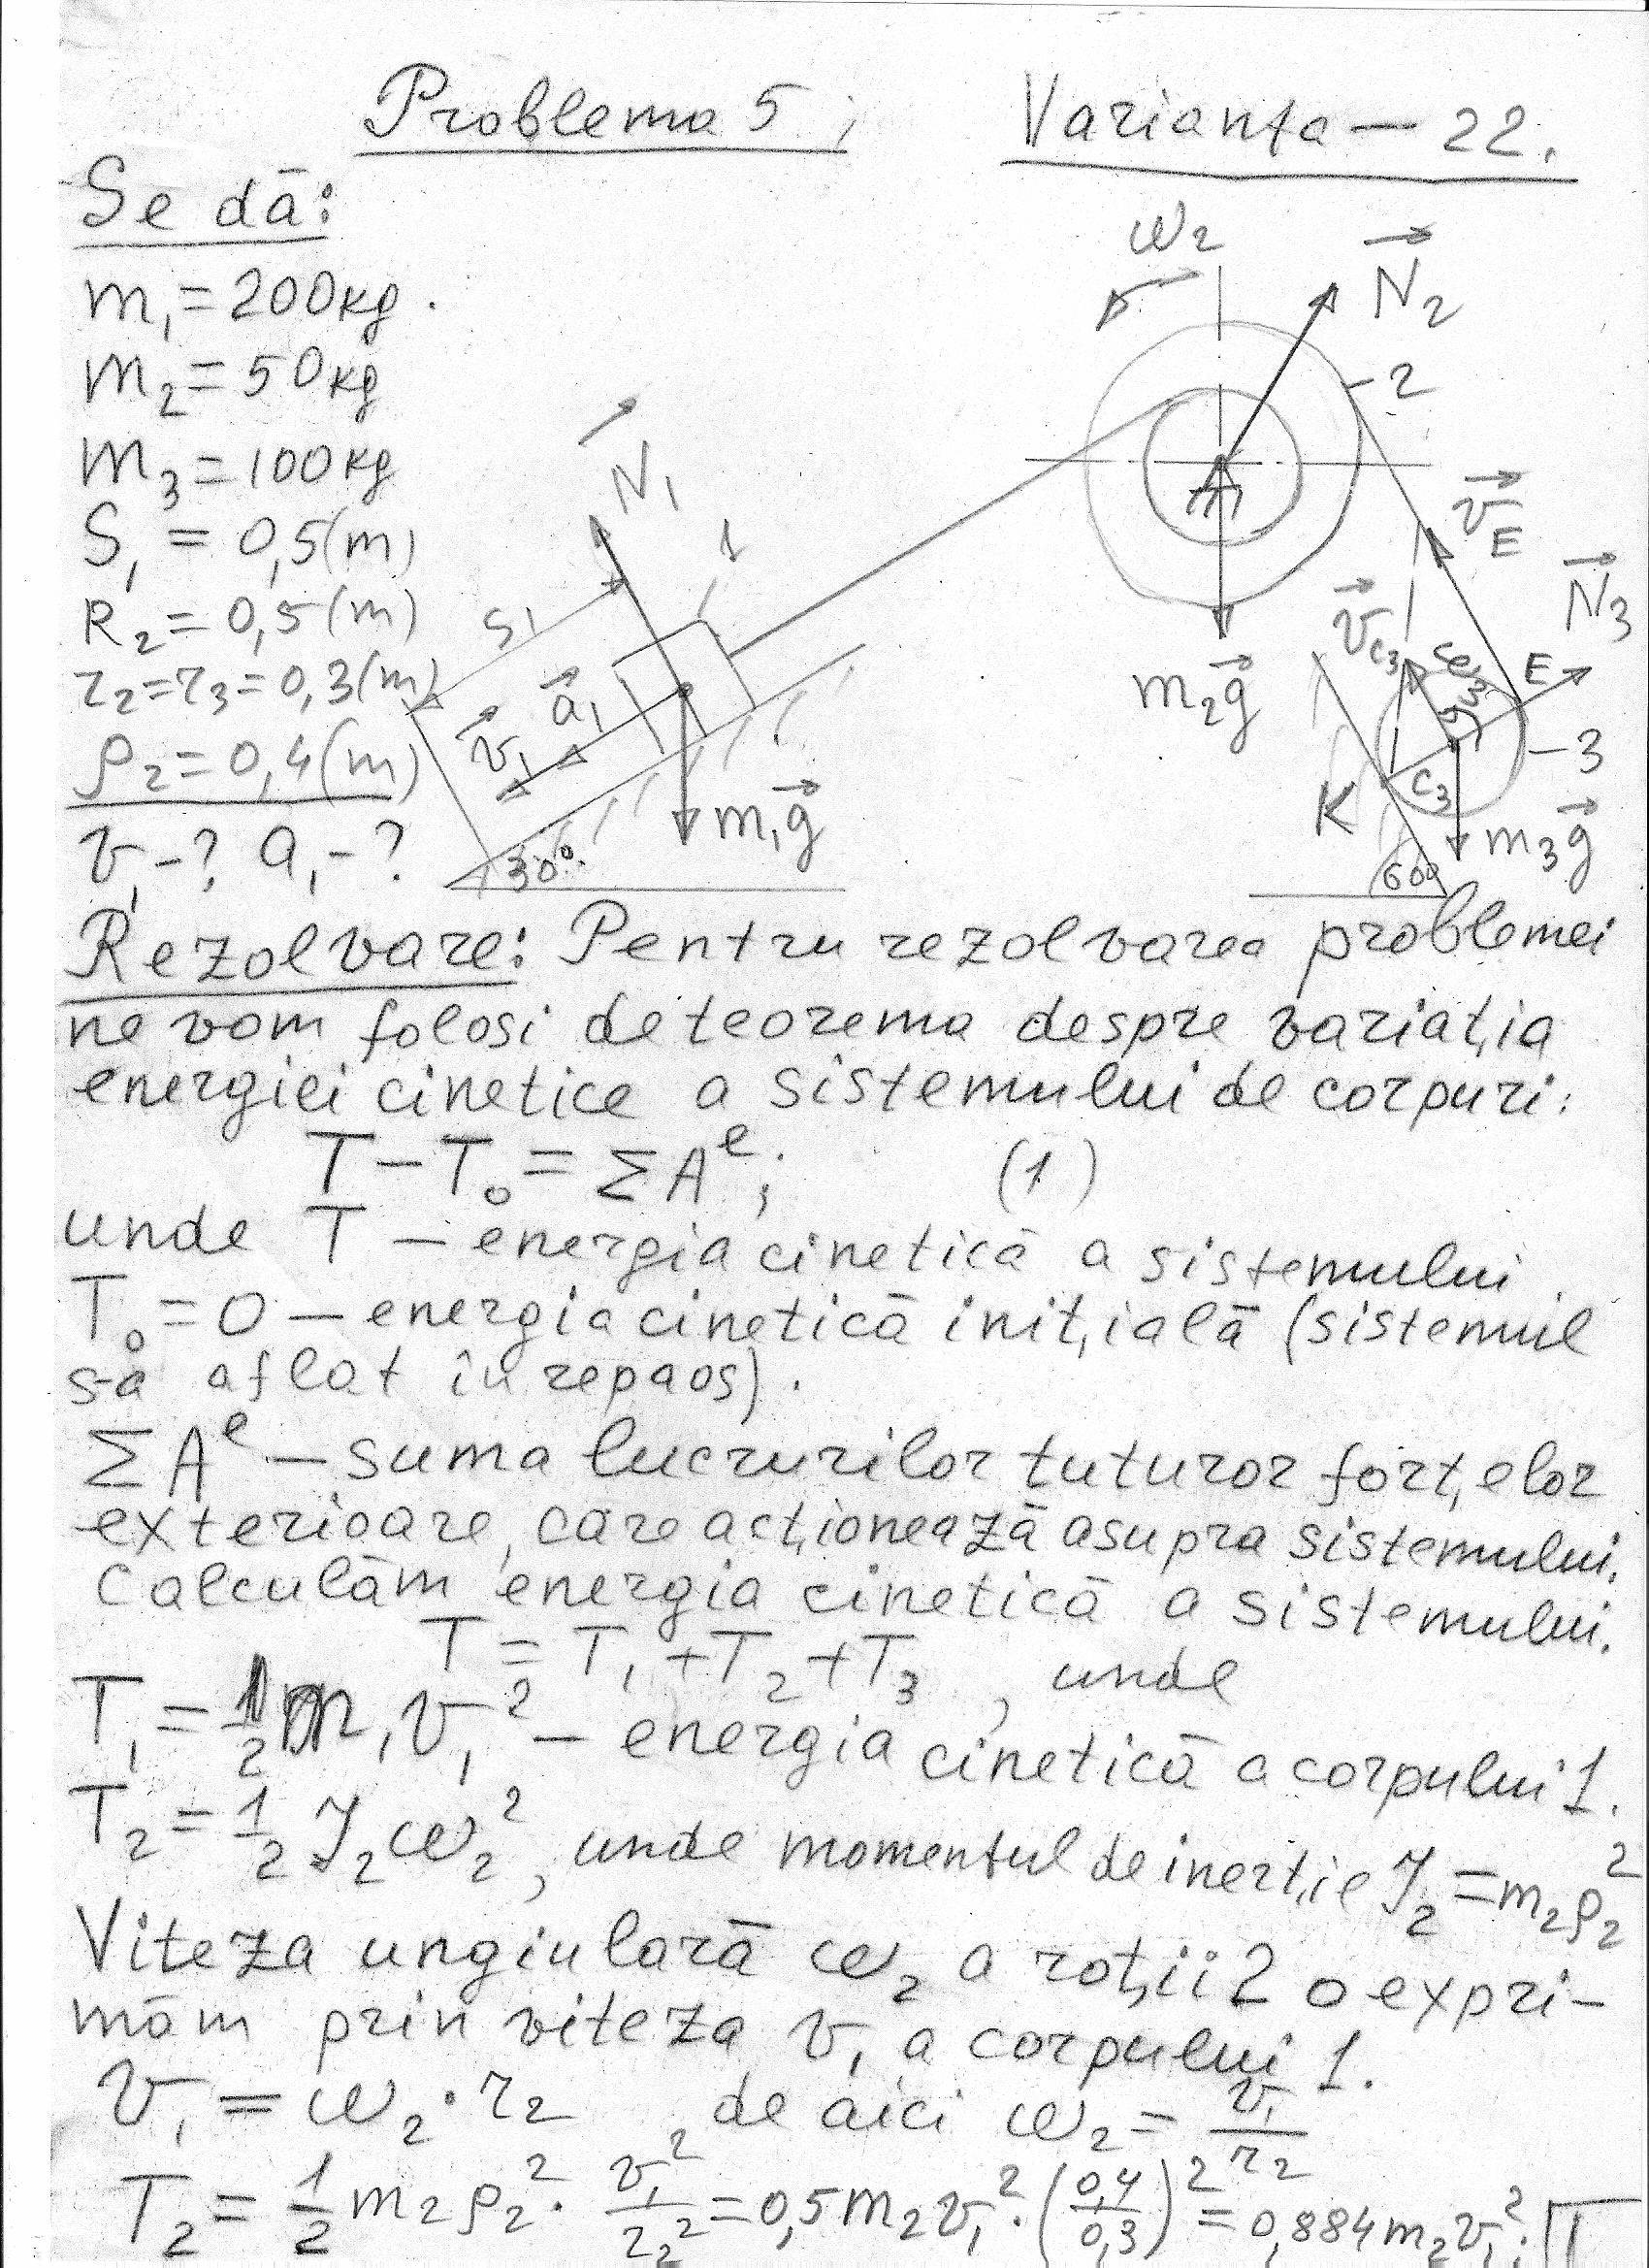 Problema 5; Varianta — 22.
Se dă:
m₁ = 200kg.
m₂ = 50kg
m₃ = 100kg
S₁ = 0,5(m)
R₂ = 0,5(m)
r₂ = r₃ = 0,3(m)
ρ₂ = 0,4(m)
v₁ - ? a₁ - ?
ω₂
N₂
2
N₁
1
S₁
a₁
v₁
m₁g
30°
m₂g
v_E
N₃
v_C₃
ω₃
E
3
K
C₃
m₃g
60°
Rezolvare: Pentru rezolvarea problemei
ne vom folosi de teorema despre variația
energiei cinetice a sistemului de corpuri:
T − T₀ = ΣAᵉ; (1)
unde T — energia cinetică a sistemului
T₀ = 0 — energia cinetică inițială (sistemul
s-a aflat în repaos).
ΣAᵉ — suma lucrurilor tuturor forțelor
exterioare, care acționează asupra sistemului.
Calculăm energia cinetică a sistemului.
T = T₁ + T₂ + T₃, unde
T₁ = 1/2 m₁v₁² — energia cinetică a corpului 1.
T₂ = 1/2 J₂ω₂², unde momentul de inerție J₂ = m₂ρ₂²
Viteza ungiulară ω₂ a roții 2 o expri-
măm prin viteza v₁ a corpului 1.
v₁ = ω₂·r₂ de aici ω₂ = v₁/r₂
T₂ = 1/2 m₂ρ₂²· v₁²/r₂² = 0,5m₂v₁²·(0,4/0,3)² = 0,884m₂v₁²;